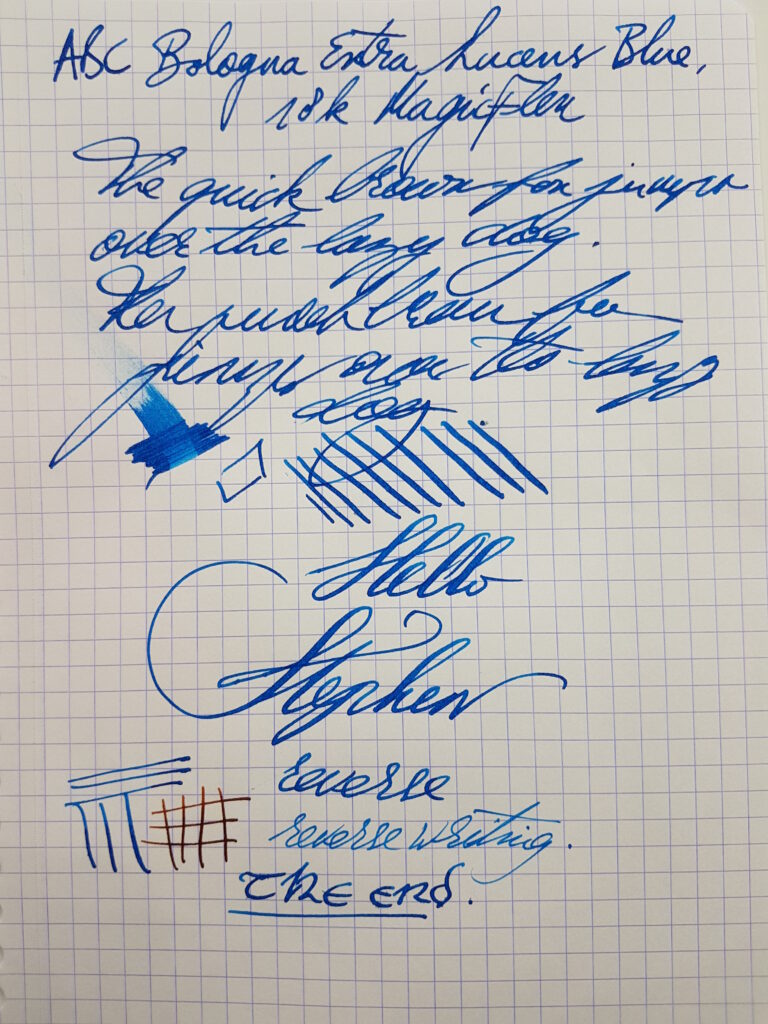 ABC Bologna Extra Lucens Blue,
18k MagicFlex
The quick brown fox jumps
over the lazy dog.
the lazy
dog
Hello
Stephen
reverse
reverse writing.
The End.